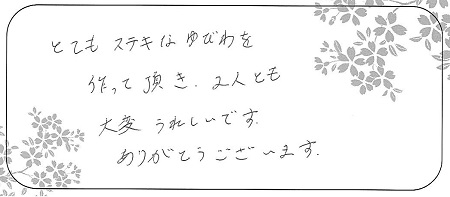 とても ステキな ゆびわを
作って 頂き、2人とも
大変 うれしいです.
ありがとうございます.